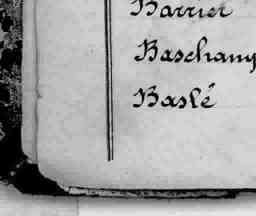 Barrier
Baschamp
Baslé